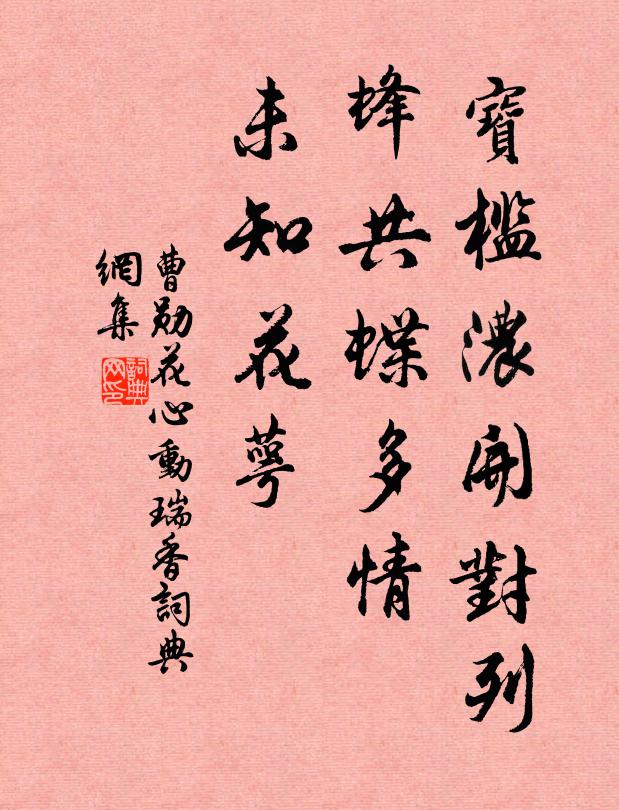 寶檻濃開對列
蜂共蝶多情
未知花萼
曹勛花心動瑞香詞典
網集
詞典網印